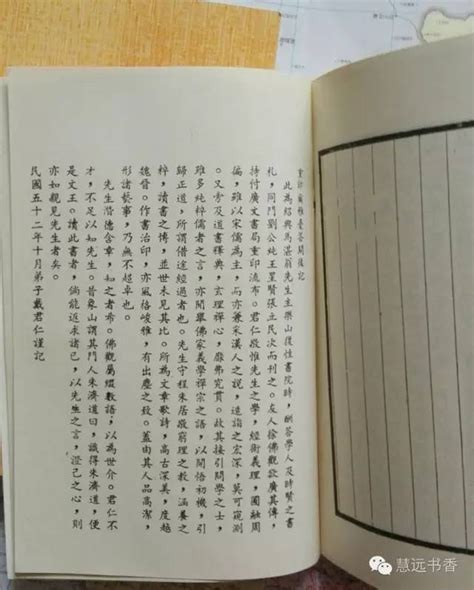 重印爾雅臺答問後記
此為紹興馬湛翁先生主樂山復性書院時，酬答學人及時賢之書
札，同門劉公純王星賢張立民次而刊之。友人徐佛觀欲廣其傳，
持付廣文書局重印流布。君仁敬惟先生之學，經術義理，圓融周
徧，雖以宋儒為主，而亦兼采漢人之說，造詣之宏深，莫可窺測
。又旁及道書釋典，玄理禪心，靡弗究貫。故其接引問學之士，
雖多純粹儒者之言，亦間舉佛家義學禪宗之語，以開悟初機，引
歸正道，所謂借途經過者也。先生守程朱居敬窮理之教，涵養之
粹，讀書之博，並世未見其比。所為文章歌詩，高古深美，度越
魏晉。作書治印，亦風格峻雅，有出塵之致。蓋由其人品高潔，
形諸藝事，乃無不超卓也。
先生潛德含章，知之者希。佛觀屬綴數語，以為世介。君仁不
才，不足以知先生。昔象山謂其門人朱濟道曰，識得朱濟道，便
是文王。讀此書者，倘能返求諸己，以先生之言，澄己之心，則
亦如親見先生者矣。
民國五十二年十月弟子戴君仁謹記
慧远书香